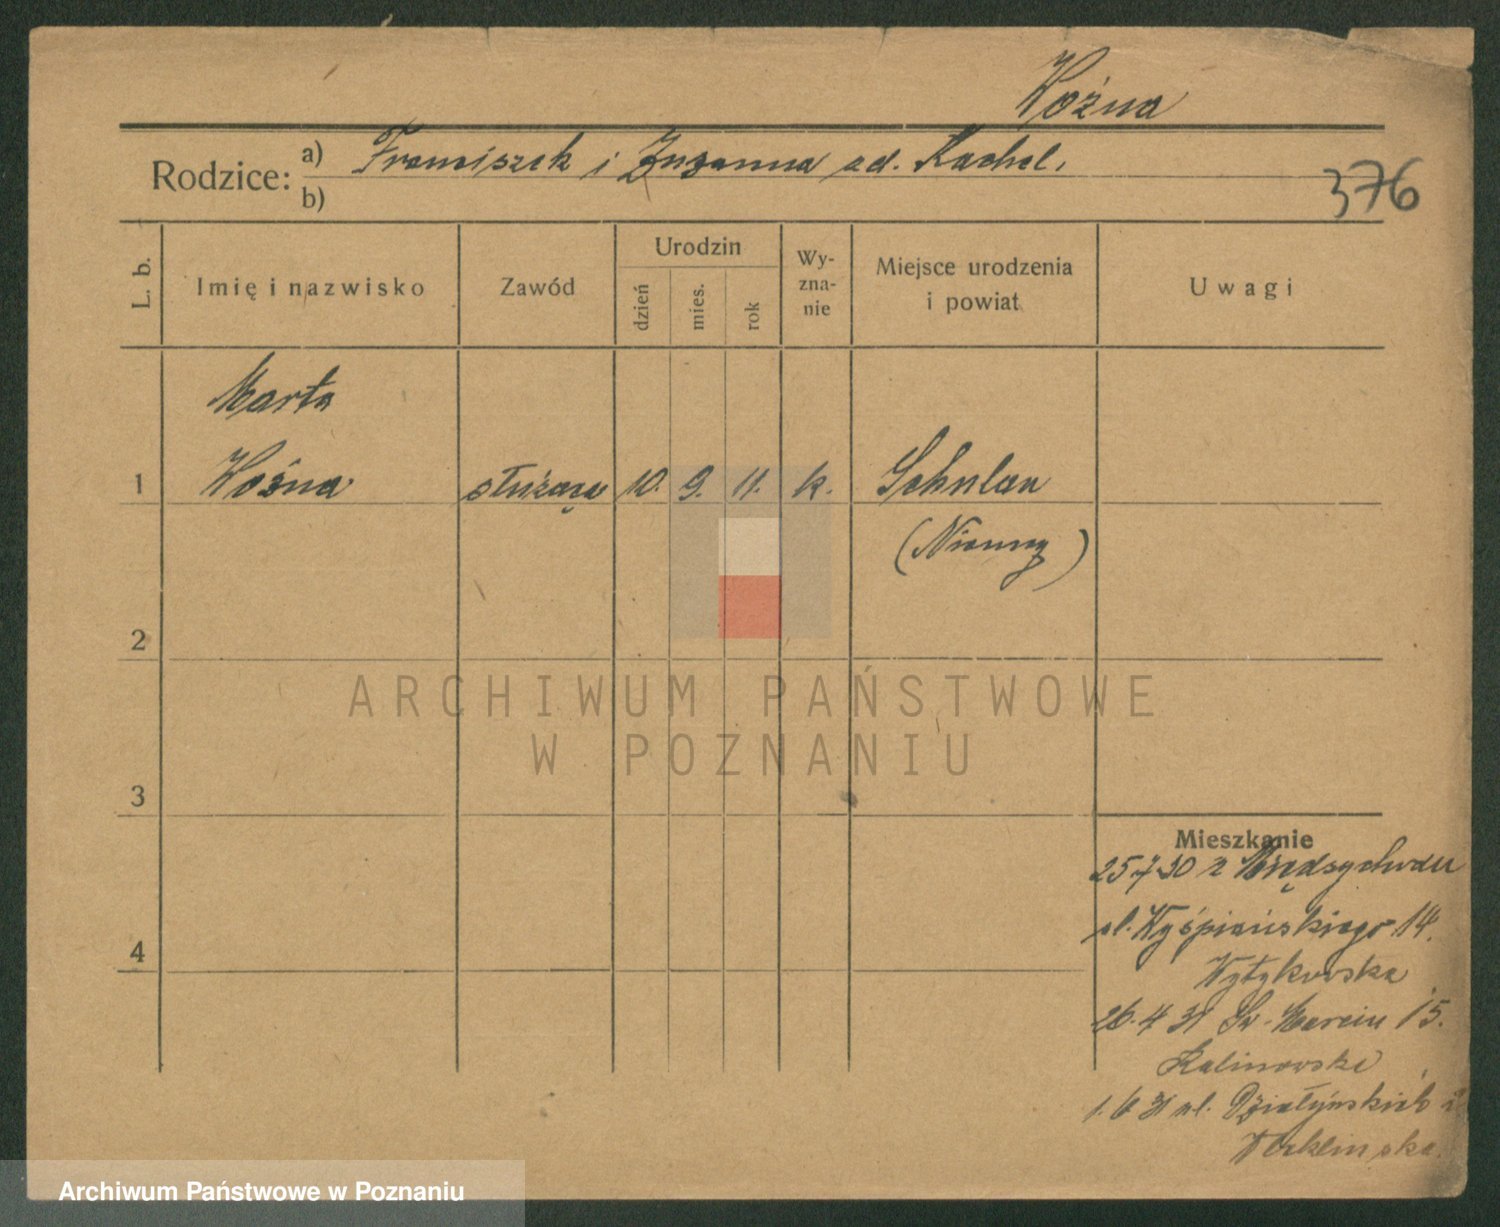 Woźna
Rodzice: a) Franciszek i Zuzanna zd. Kachel.
b)
376
L. b. Imię i nazwisko Zawód Urodzin dzień mies. rok Wy-zna-nie Miejsce urodzenia i powiat Uwagi
Marta
1 Woźna służąca 10. 9. 11. k.
(Niemcy)
2
ARCHIWUM PAŃSTWOWE
W POZNANIU
3
Mieszkanie
25 7 30 z Międzychodu
ul. Wyśpiańskiego 14.
Wytykowska
4
26. 4 31 Św. Marcin 15.
Kalinowski
1. 6 31 ul. Działyńskich
Archiwum Państwowe w Poznaniu